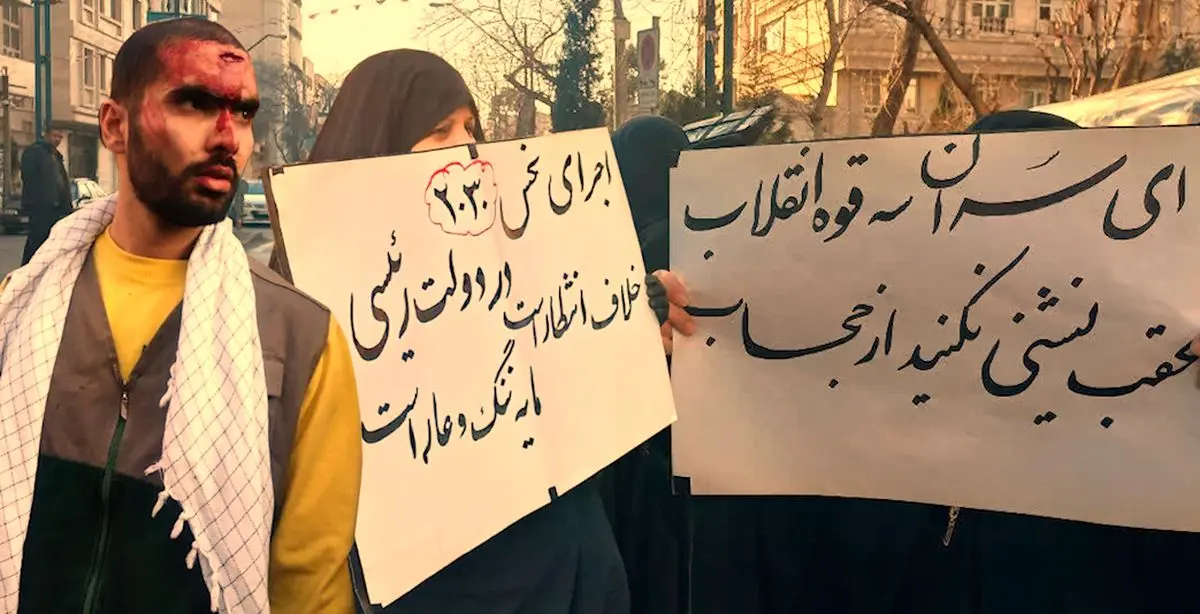 ای سران سه قوه انقلاب
عقب نشینی نکنید از حجاب
اجرای نحس ۲۰۳۰
در دولت رئیسی
خلاف انتظار است
مایه ننگ و عار است